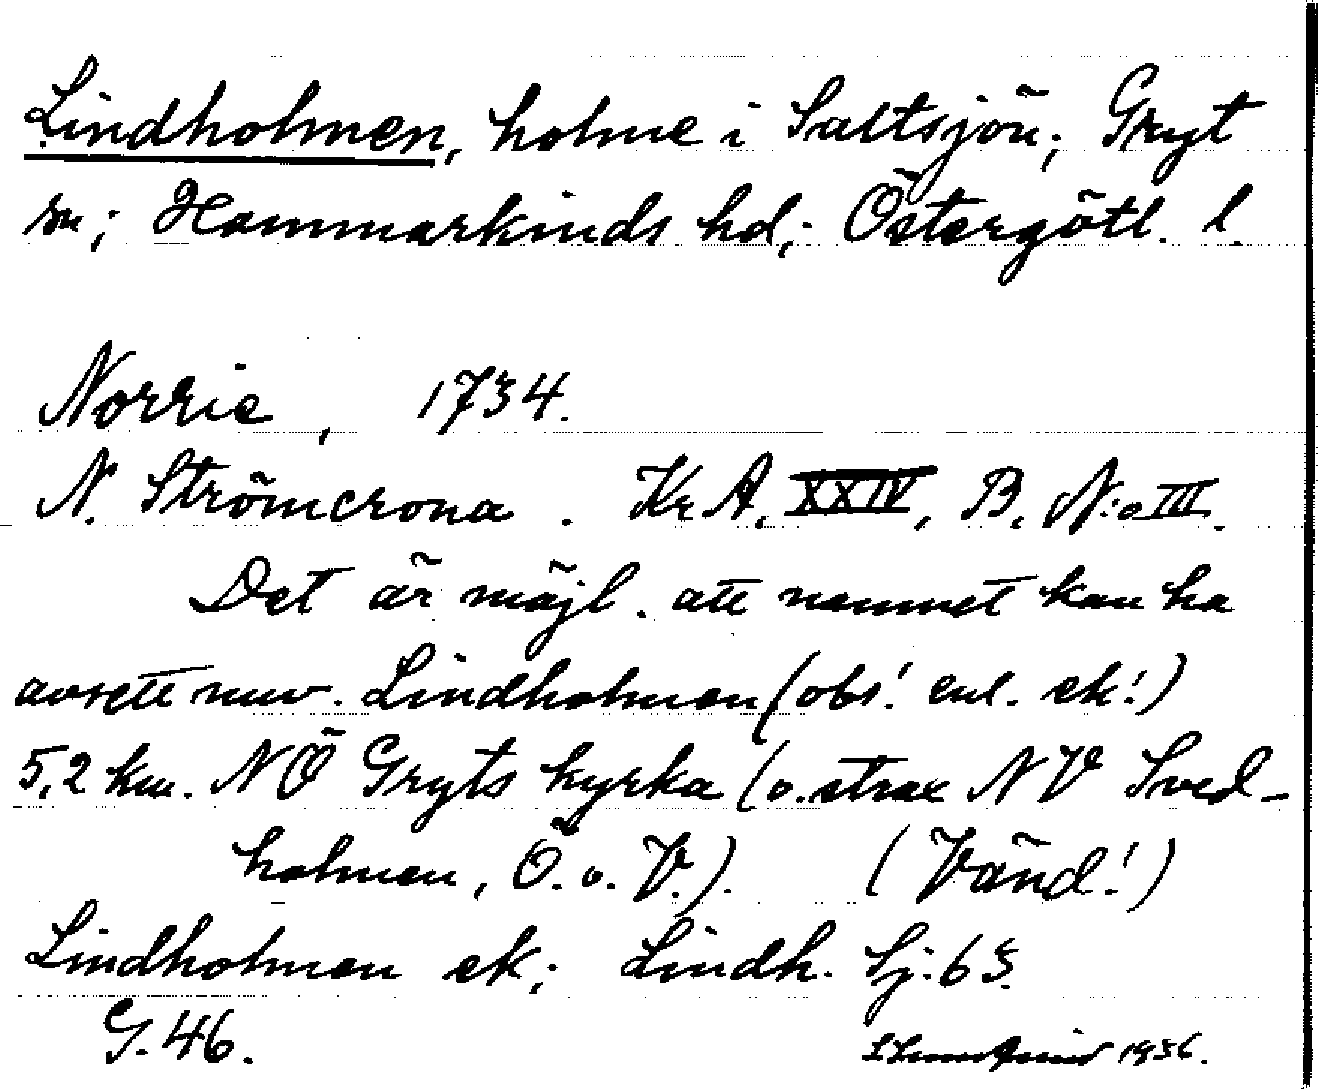 Lindholmen, holme i Saltsjön; Gryt
sn; Hammarkinds hd; Östergötl. l.
Norrie, 1734.
N. Strömcrona. Kr. A. XXIV, B. N:o III.
Det är möjl. att namnet kan ha
avsett nuv. Lindholmen (obs! enl. ek!)
5,2 km. NÖ Gryts kyrka (o. strax NV Sved-
holmen, Ö. o. V.). (Vänd!)
Lindholmen ek; Lindh. Sj. 63.
G. 46.
1936.